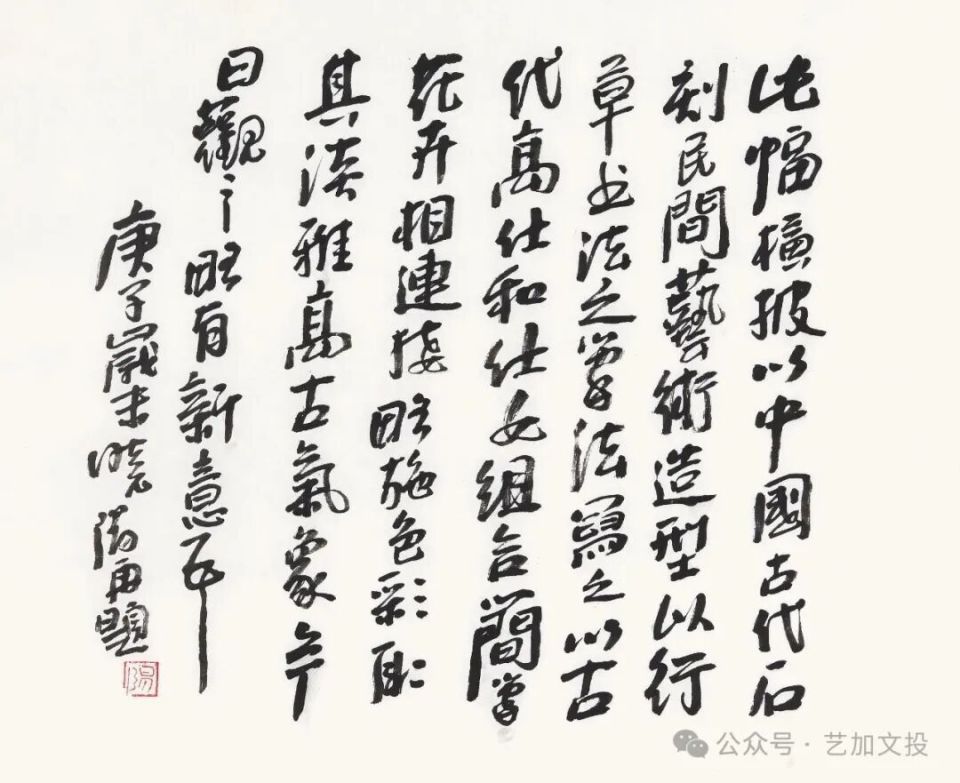 此幅橫披以中國古代石
刻民間藝術造型以行
草书法之笔法寫之以古
代高仕和仕女組合簡笔
花卉相連接略施色彩取
其淡雅高古氣象今
日觀之略有新意耳
庚子歲末曉陽再題
公众号·艺加文投